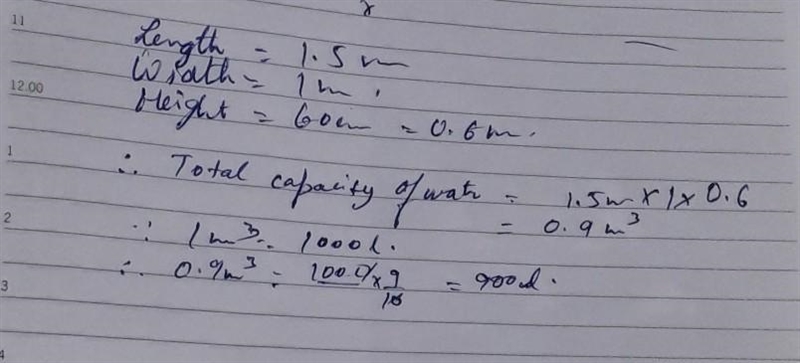 11
Length = 1.5 m
Width = 1 m.
12.00
Height = 60cm = 0.6m.
1
∴ Total capacity of wate = 1.5m x 1 x 0.6
= 0.9 m³
2
∵ 1 m³ = 1000 l.
∴ 0.9m³ = 1000 x 9/10 = 900
3
4